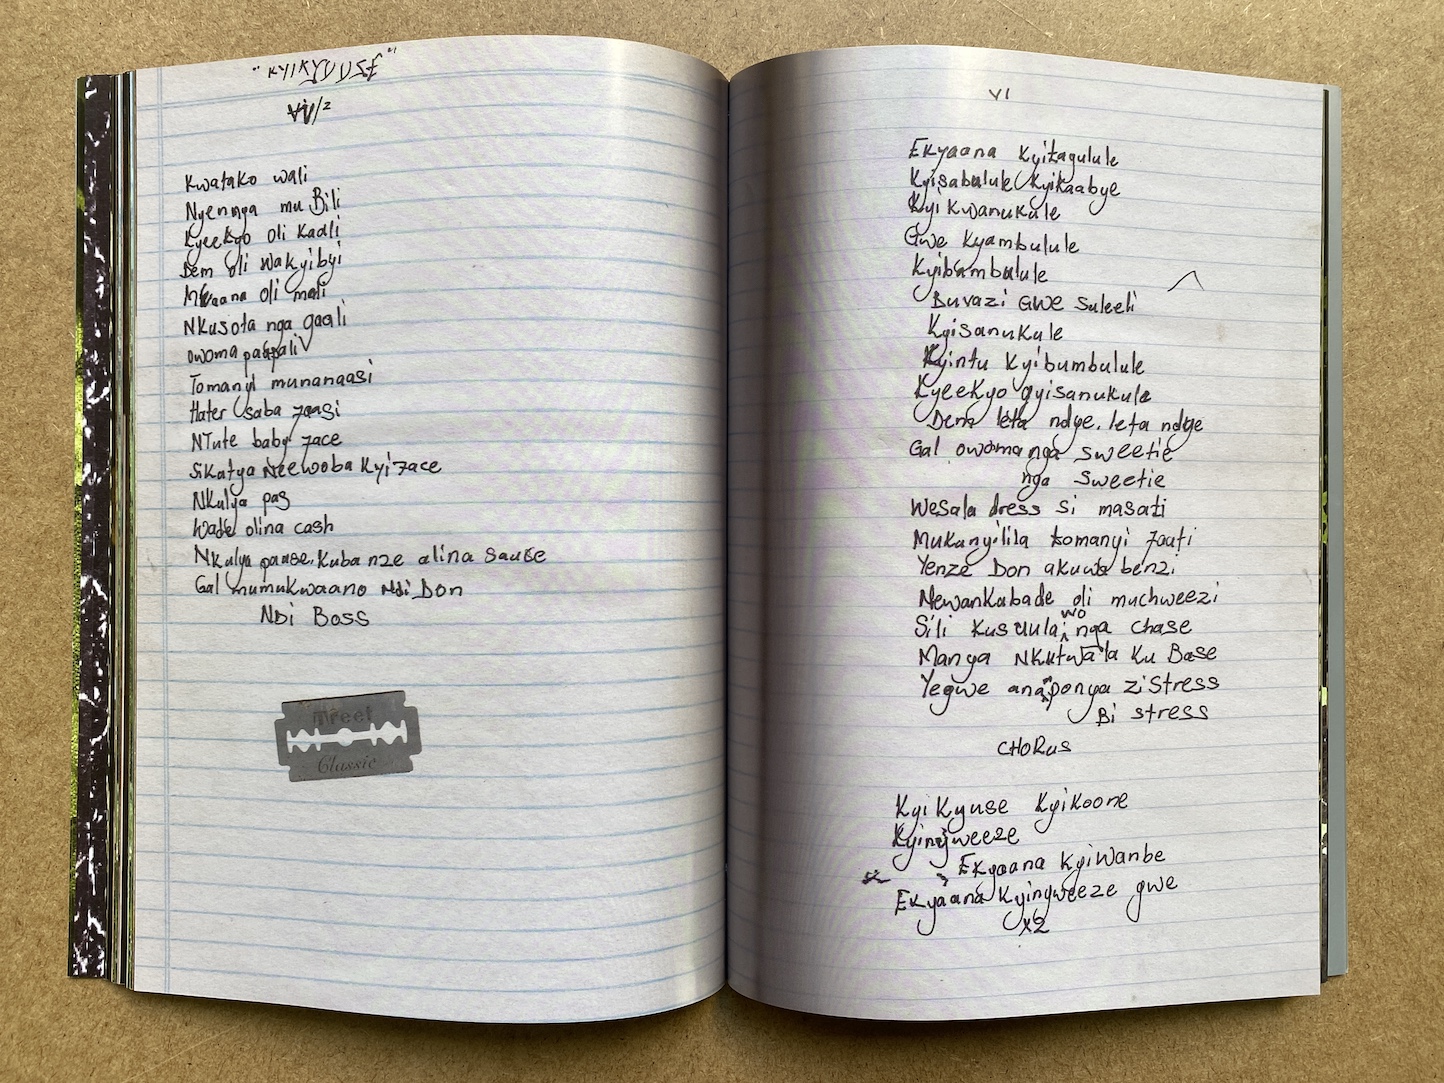 "KYIKYUUSE"
V1/2
Kwatako wali
Nyennga mu Bili
Kyeekyo oli Kaali
Dem oli wakyibyi
oli mali
Nkusota nga gaali
owoma
Tomanyi munanaasi
Hater saba 7aasi
NTute baby 7ace
Sikatya Neewoba Kyi7ace
NKulya pas
Wade olina cash
NKulya paase. Kuba nze alina sause
Gal mumukwaano Ndi Don
NDi Boss
Treet
Classic
V1
Ekyaana Kyitagulule
Kyisabulule Kyikaabye
Kyi Kwanukule
Gwe Kyambulule
Kyibambulule
Buvazi GWE Suleeti
Kyisanukule
Kyintu Kyibumbulule
Kyeekyo gyisanukule
Dem leta ndge. leta ndge
Gal owoma nga sweetie
nga sweetie
Wesala dress si masati
Mukanyilila tomanyi 7outi
Yenze Don akuwa benzi
Newankabade oli muchweezi
Sili kusuula wo nga chase
Manya NKutwala Ku Base
Yegwe ponya zistress
Bi stress
CHORUS
Kyi Kyuse Kyikoone
Kyinyweeze
Ekyaana Kyiwanbe
Ekyaana Kyinyweeze gwe
x2